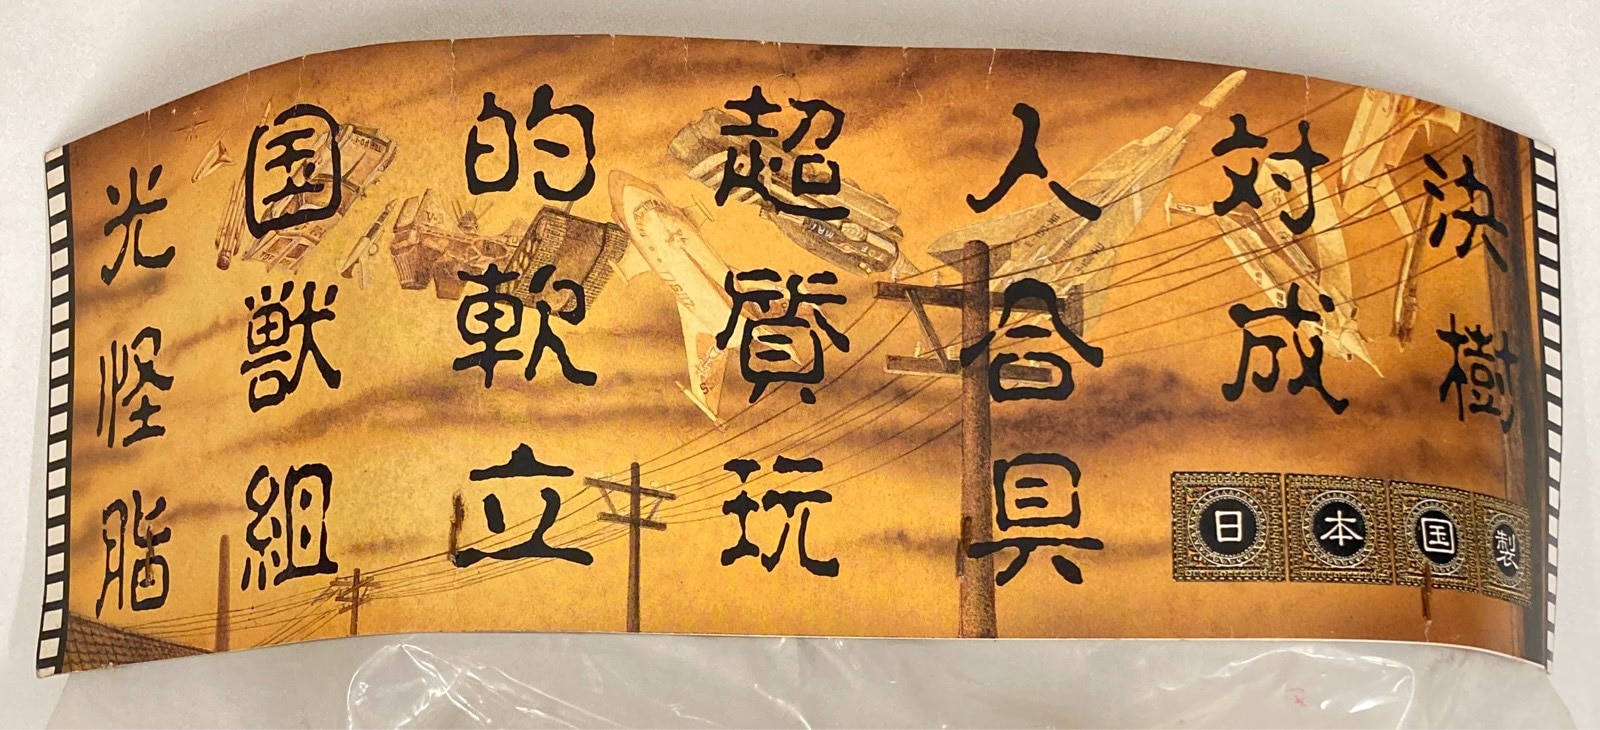 光国的超人対決
怪獣軟質合成樹
脂組立玩具
日本国製